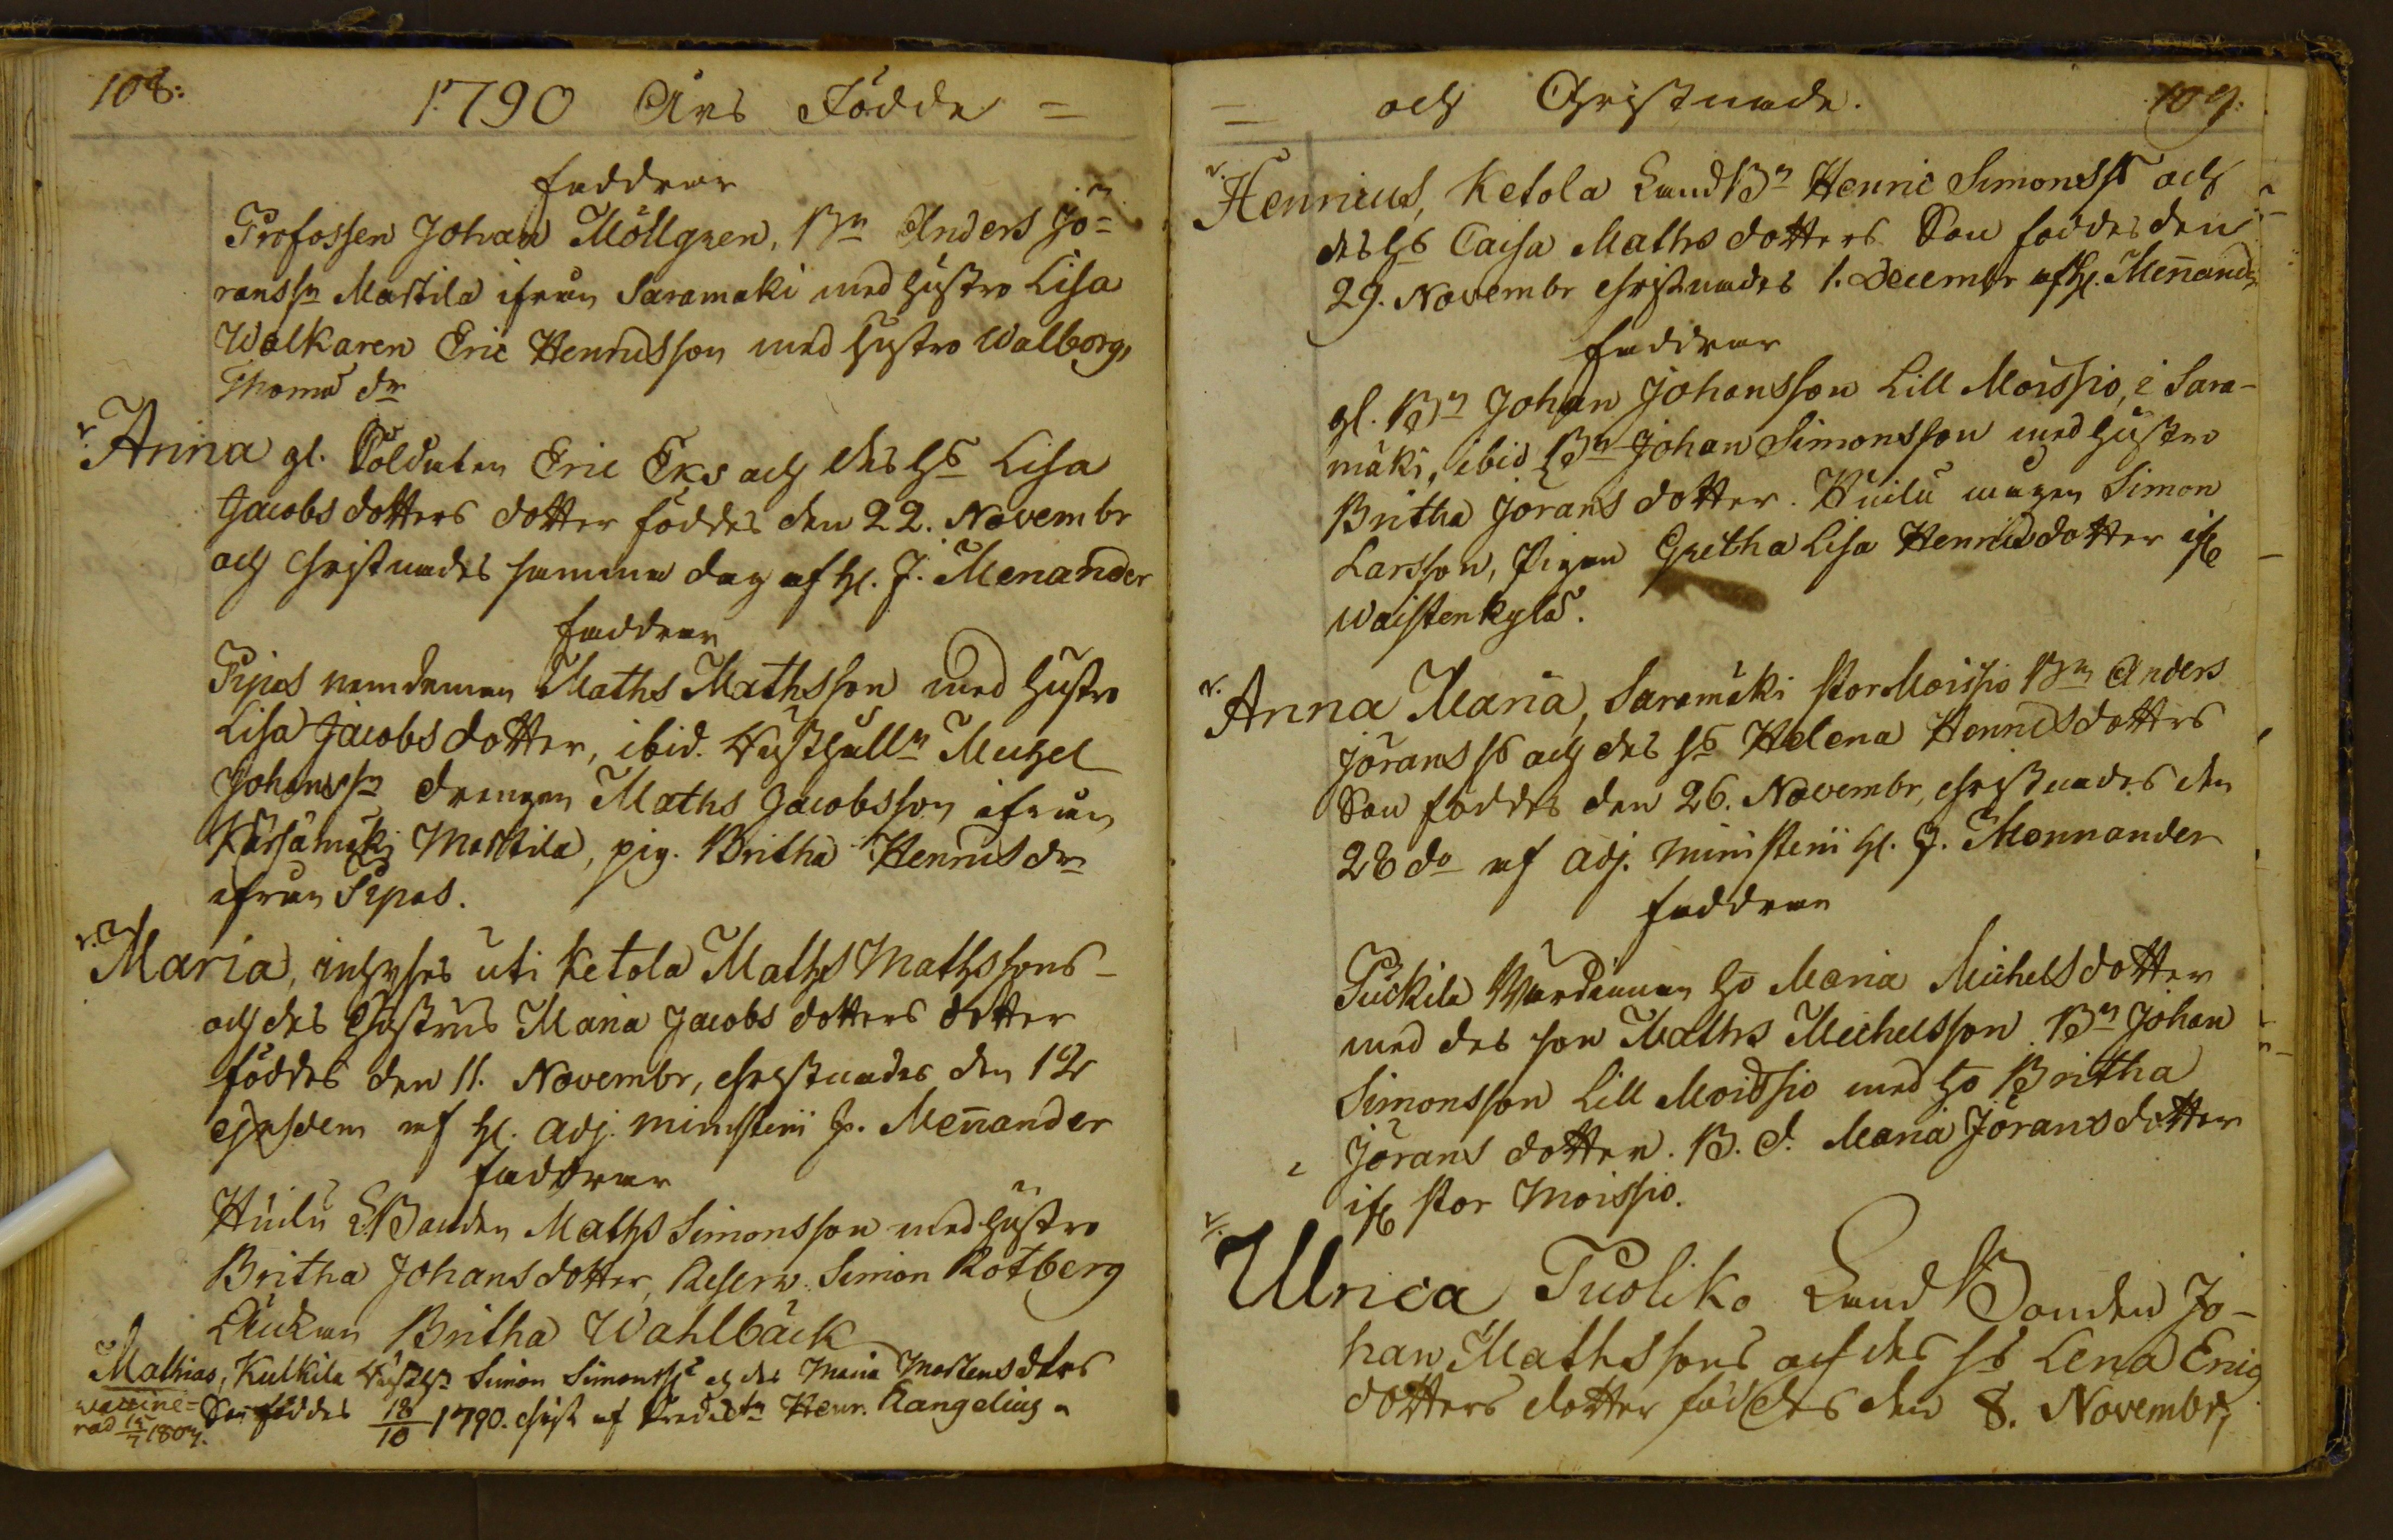 108:
1790 Års Födde =
faddrar
Profossen Johan Möllgren, Bn Anders Jö=
ransson Mastila ifrån Saramäki med hustro Lisa
Walkaren Eric Henricsson med hustro Walborg,
Thomæ dr
r. Anna gl. Soldaten Eric Eks och des hs Lisa
Jacobs dotters dotter föddes den 22. Novembr
och christnades samma dag af H. J. Menander
faddrar
Pipos nemdeman Maths Mathsson med hustro
Lisa Jacobs dotter, ibid. Rusthålln Michel
Johanssn drengen Maths Jacobsson ifrån
Kärsämäki Mattila, pig. Britha Henrics dr
ifrån Pipos.
r. Maria, inhyses uti Ketola Maths Mathssons
och des Hustrus Maria Jacobs dotters dotter
föddes den 11. Novembr, christnades den 12
ejusdem af H. adj. ministerii J. Menander
faddrar
Huilu LBonden Maths Simonsson med hustro
Britha Johans dotter, Reserv. Simon Rotberg
Britha Wahlbäck
Mathias, Kulkila Rusth Simon Simonss och des Maria Mortensdtrs
vaccine=
rad 15/7 1807.
Son föddes 18/10 1790. christ af Predicn Henr. Rangelius
= och Christnade.
109.
r. Henricus, Ketola LandBn Henric Simonss och
des hs Caisa Maths dotters Son föddes den
29. Novembr christnades 1. Decembr af H. Menand:
faddrar
gl. Bn Johan Johansson Lill Moissio, i Sara-
mäki, ibid Bn Johan Simonsson med hustro
Britha Jörans dotter. Huilu mågen Simon
Larsson, Pigan Gretha Lisa Henricsdotter ifr
Waistenkylä.
r. Anna Maria, Saramäki Stor Moissio Bn Anders
Jöranss och des hs Helena Henricsdotters
Son föddes den 26. Novembr, christnades den
28 do af adj. ministerii H. J. Mennander
faddrar
Puckila Wärdinnan ho Maria Michelsdotter
med des son Maths Michelsson Bn Johan
Simonsson Lill Moissio med ho Britha
Jörans dotter. B. d. Maria Jörans dotter
ifr Stor Moissio.
r. Ulrica Tuoliko Land Bonden Jo-
han Mathssons och des hs Lena Erics
dotters dotter föddes den 8. Novembr,